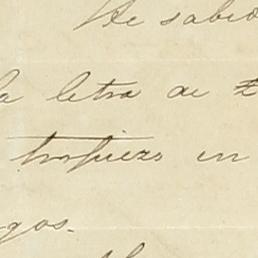 He sabid
la letra de
tropiezo en
gos.